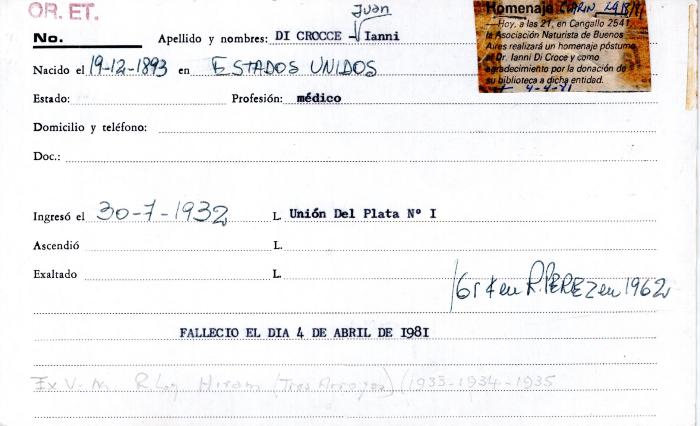 OR. ET.
No.
Juan
Apellido y nombres: DI CROCCE - Ianni
Homenaje CLARIN
Hoy, a las 21, en Cangallo 2541
la Asociación Naturista de Buenos
Aires realizará un homenaje póstumo
al Dr. Ianni Di Croce y como
agradecimiento por la donación de
su biblioteca a dicha entidad.
4-4-81
Nacido el 19-12-1893 en ESTADOS UNIDOS
Estado: Profesión: médico
Domicilio y teléfono:
Doc.:
Ingresó el 30-7-1932 L. Unión Del Plata Nº I
Ascendió L.
Exaltado L.
en R. PEREZ en 1962
FALLECIO EL DIA 4 DE ABRIL DE 1981
Ex V. M. R Log Hiram (Tres Arroyos) (1933-1934-1935